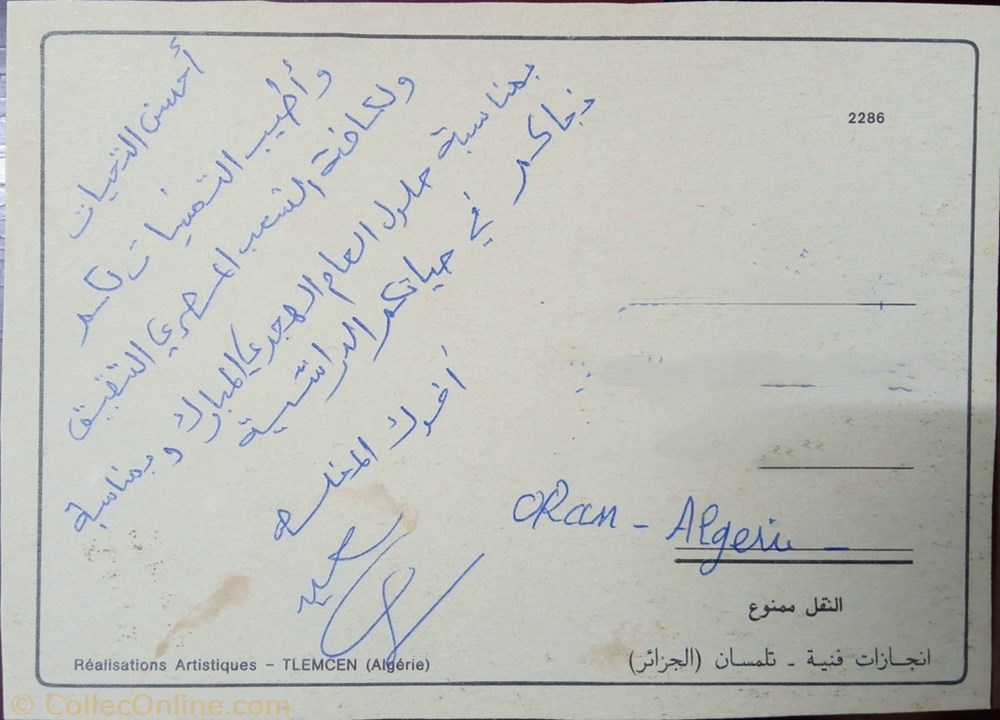 أحسن التحيات
وأطيب التمنيات لكم
ولكافة الشعب المصري الشقيق
بمناسبة حلول العام الهجري المبارك وبمناسبة
نجاحكم في حياتكم الدراسية
أخوك المخلص
سعيد
2286
ORan - Algerie -
النقل ممنوع
Réalisations Artistiques – TLEMCEN (Algérie)
انجازات فنية ـ تلمسان (الجزائر)
© CollecOnline.com